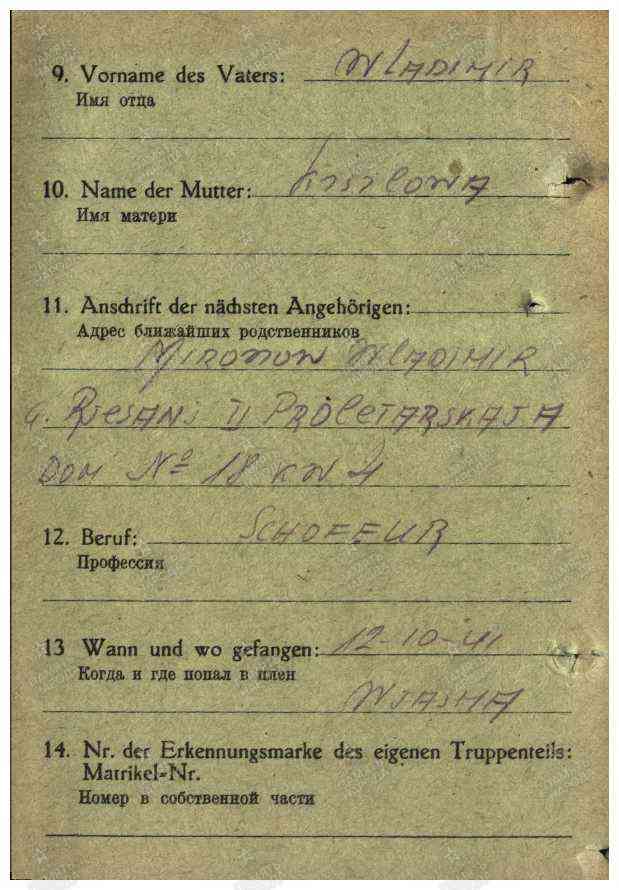 9. Vorname des Vaters: WLADIMIR
Имя отца
10. Name der Mutter: Kisilowa
Имя матери
11. Anschrift der nächsten Angehörigen:
Адрес ближайших родственников
Mironow WLADIMIR
G. RJESANJ II PROLETARSKAJA
DOM Nº 18 KW 4
12. Beruf: SCHOFEUR
Профессия
13 Wann und wo gefangen: 12-10-41
Когда и где попал в плен
WJASMA
14. Nr. der Erkennungsmarke des eigenen Truppenteils:
Matrikel-Nr.
Номер в собственной части